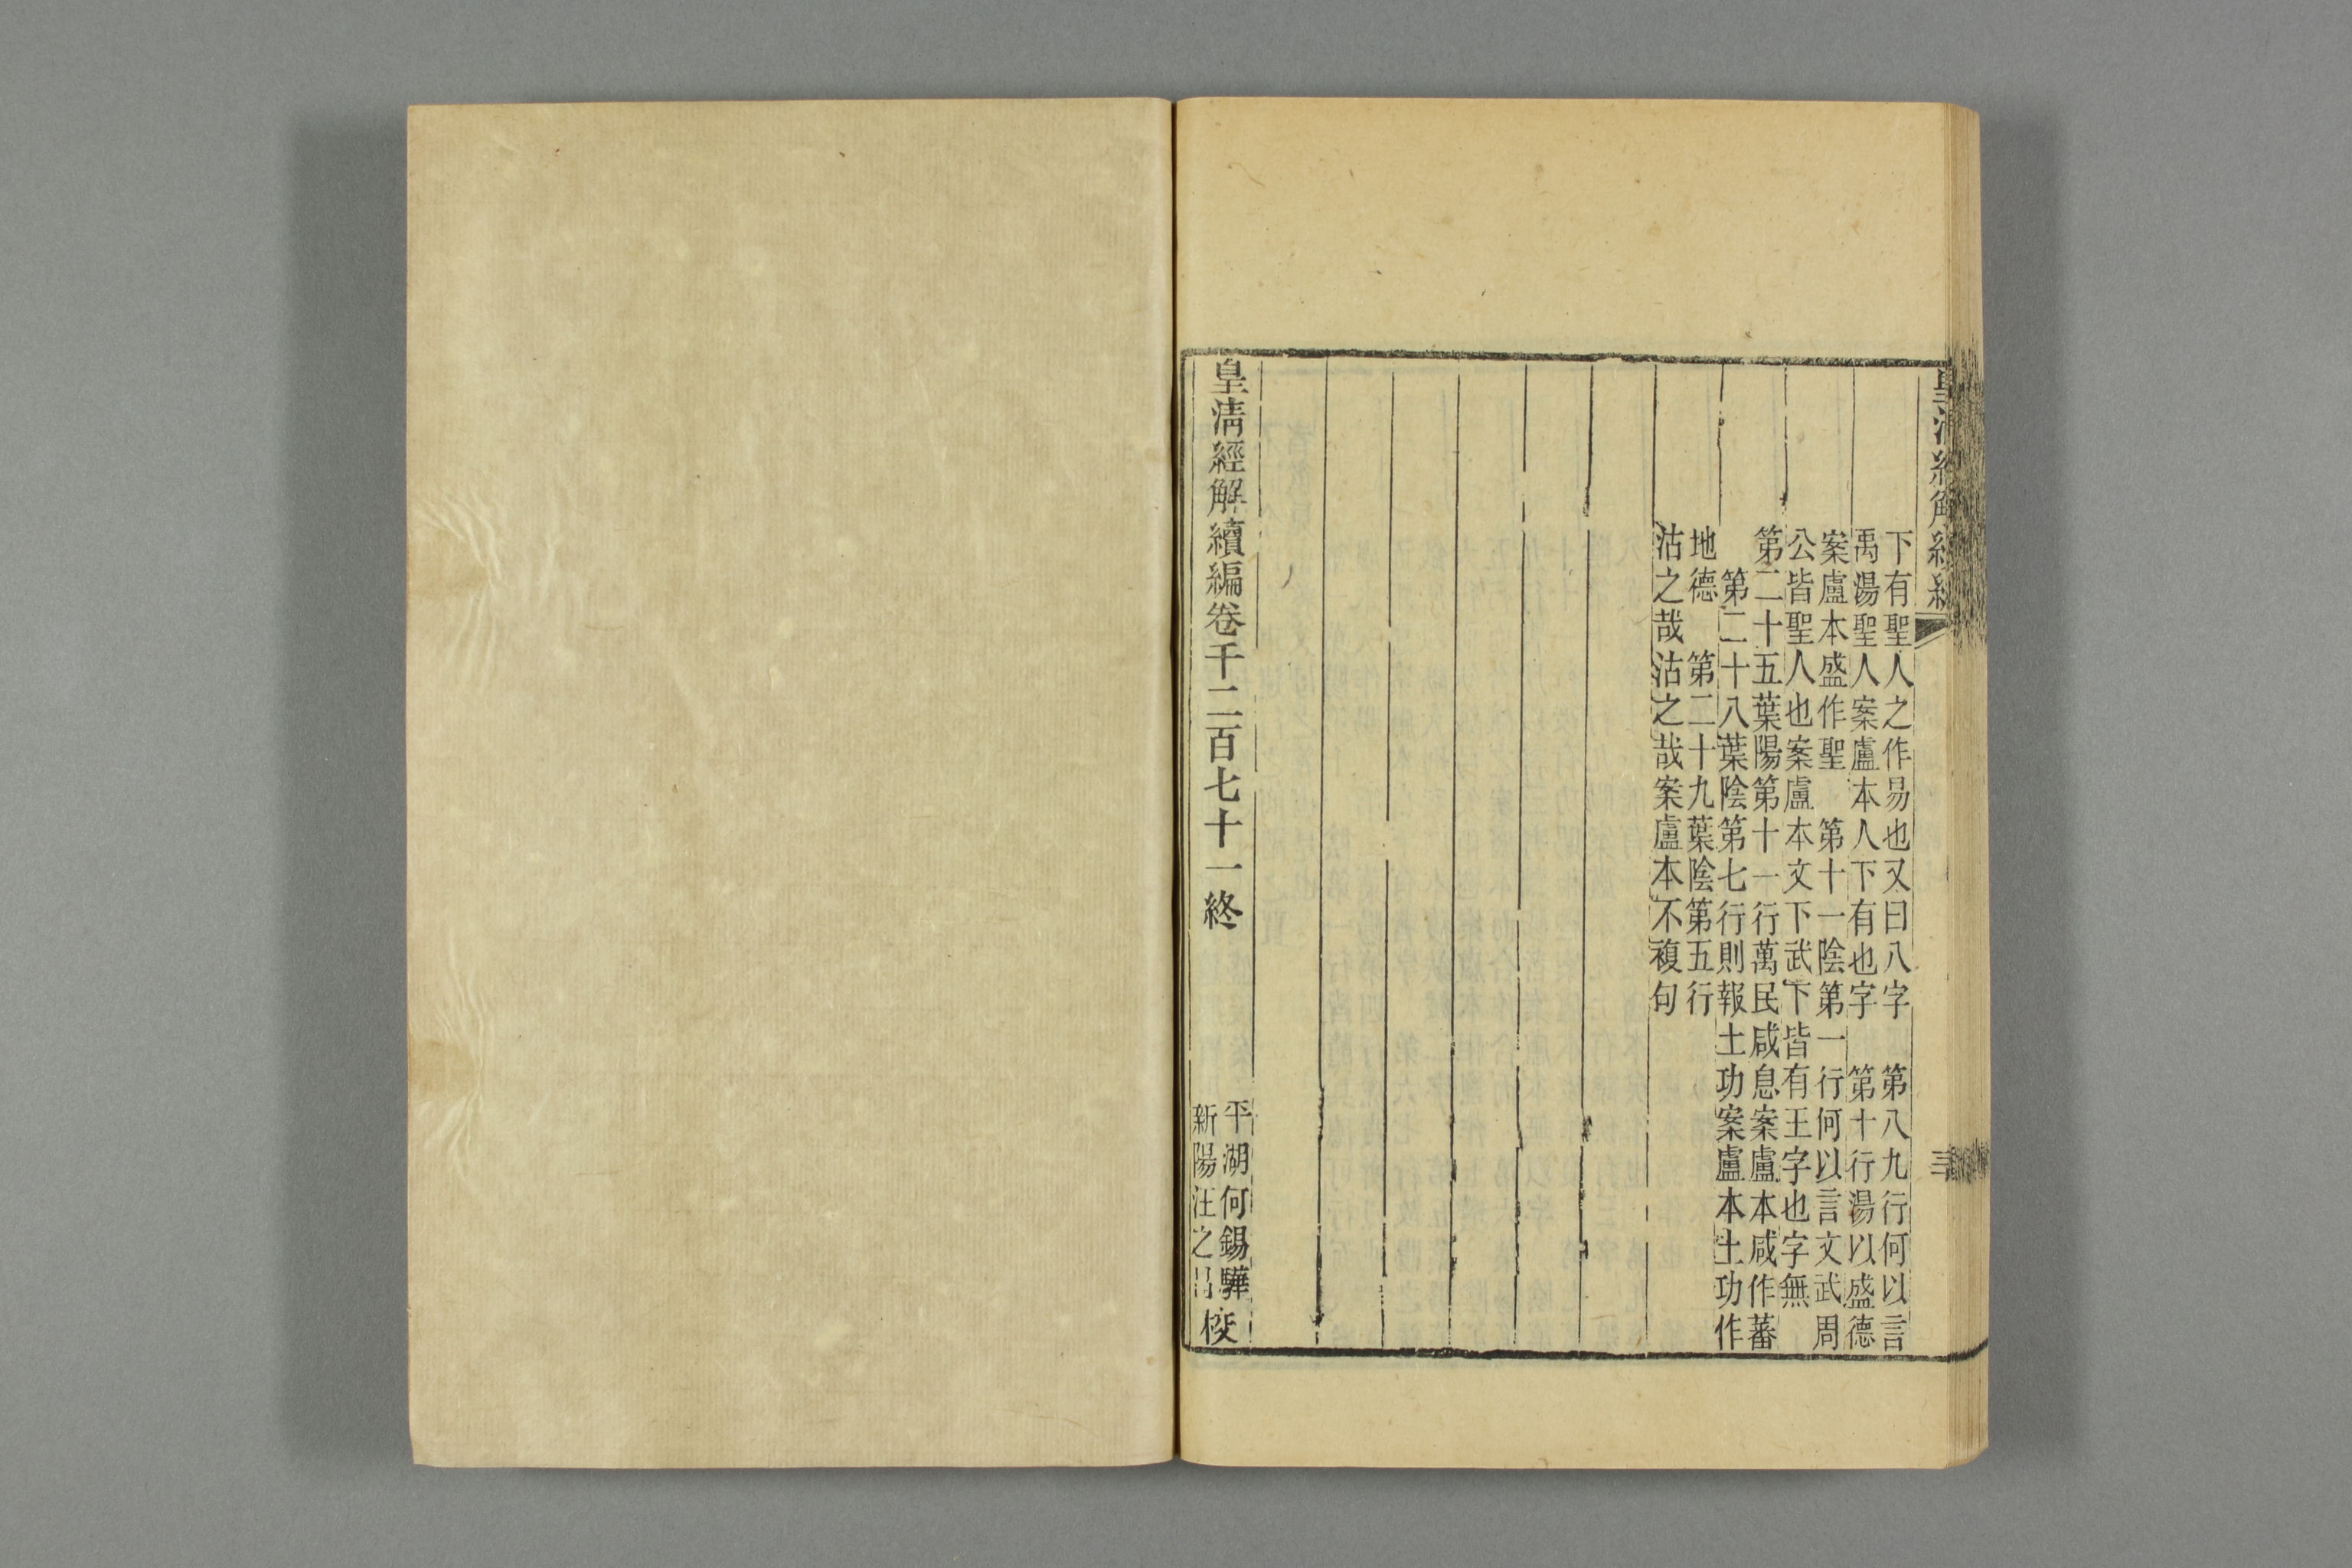 皇清經解續編
三
下有聖人之作易也又曰八字　第八九行何以言
禹湯聖人案盧本人下有也字　第十行湯以盛德
案盧本盛作聖　第十一陰第一行何以言文武周
公皆聖人也案盧本文下武下皆有王字也字無
第二十五葉陽第十一行萬民咸息案盧本咸作蕃
第二十八葉陰第七行則報土功案盧本土功作
地德　第二十九葉陰第五行
沽之哉沽之哉案盧本不複句
皇清經解續編卷千二百七十一終
平湖何錫驊
新陽汪之昌
校